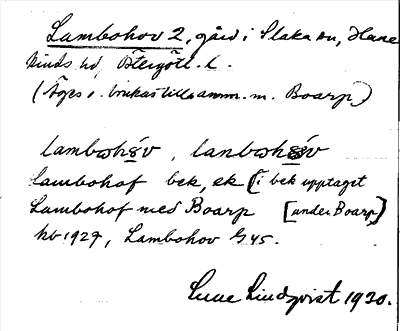 Lambohov 2, gård i Slaka sn, Hane
kinds hd, Östergötl. l.
(Äges o. brukas tillsamm. m. Boarp)
lambohóv, lanbohóv
Lambohof bek, ek [i bek upptaget
Lambohof med Boarp [under Boarp]
hb 1927, Lambohov G 45.
Sune Lindqvist 1930.